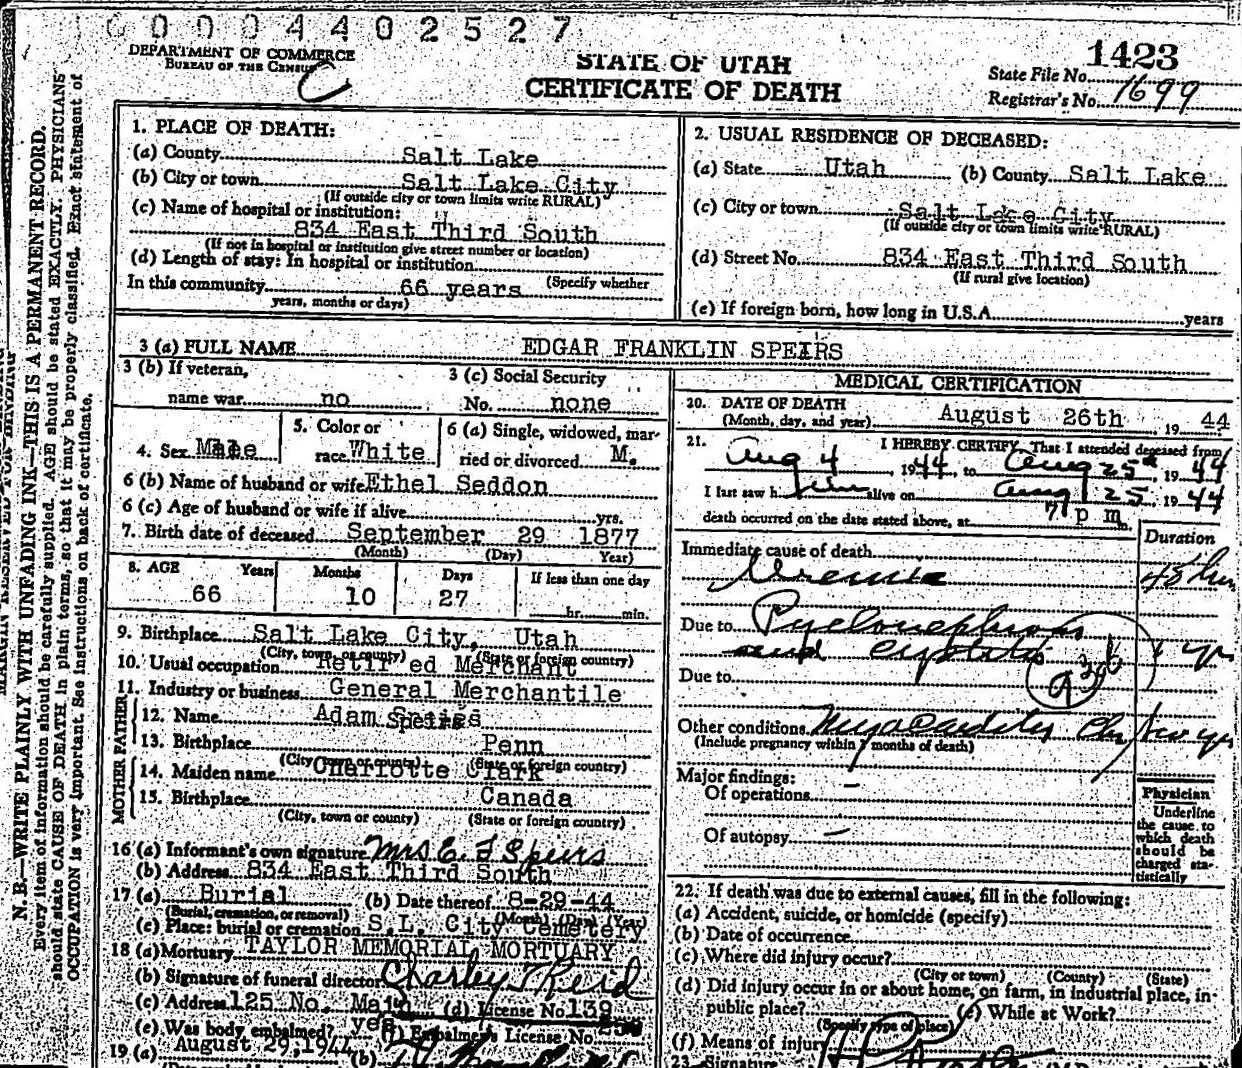 0 0 0 4 4 0 2 5 2 7
DEPARTMENT OF COMMERCE
BUREAU OF THE CENSUS
C
STATE OF UTAH
CERTIFICATE OF DEATH
1423
State File No.
Registrar's No. 1699
N. B.—WRITE PLAINLY WITH UNFADING INK—THIS IS A PERMANENT RECORD.
Every item of information should be carefully supplied. AGE should be stated EXACTLY. PHYSICIANS
should state CAUSE OF DEATH in plain terms, so that it may be properly classified. Exact statement of
OCCUPATION is very important. See instructions on back of certificate.
1. PLACE OF DEATH:
(a) County Salt Lake
(b) City or town Salt Lake City
(If outside city or town limits write RURAL)
(c) Name of hospital or institution:
834 East Third South
(If not in hospital or institution give street number or location)
(d) Length of stay: In hospital or institution
In this community 66 years (Specify whether
years, months or days)
2. USUAL RESIDENCE OF DECEASED:
(a) State Utah (b) County Salt Lake
(c) City or town Salt Lake City
(If outside city or town limits write RURAL)
(d) Street No. 834 East Third South
(If rural give location)
(e) If foreign born, how long in U.S.A. years
3 (a) FULL NAME EDGAR FRANKLIN SPEIRS
3 (b) If veteran,
name war no
3 (c) Social Security
No. none
4. Sex Male
5. Color or
race White
6 (a) Single, widowed, mar-
ried or divorced M.
6 (b) Name of husband or wife Ethel Seddon
6 (c) Age of husband or wife if alive yrs.
7. Birth date of deceased September 29 1877
(Month) (Day) Year)
8. AGE Years Months Days If less than one day
66 10 27 hr. min.
9. Birthplace Salt Lake City, Utah
(City, town, or county) (State or foreign country)
10. Usual occupation Retired Merchant
11. Industry or business General Merchantile
FATHER
12. Name Adam Speirs
13. Birthplace Penn
(City, town or county) (State or foreign country)
MOTHER
14. Maiden name Charlotte Clark
15. Birthplace Canada
(City, town or county) (State or foreign country)
16 (a) Informant's own signature Mrs E. F Speirs
(b) Address 834 East Third South
17 (a) Burial (b) Date thereof 8-29-44
(Burial, cremation, or removal) (Month) (Day) (Year)
(c) Place: burial or cremation S.L. City Cemetery
18 (a) Mortuary TAYLOR MEMORIAL MORTUARY
(b) Signature of funeral director Charley J Reid
(c) Address 125 No. Main (d) License No. 139
(e) Was body embalmed? yes (f) Embalmer's License No.
19 (a) August 29, 1944 (b)
MEDICAL CERTIFICATION
20. DATE OF DEATH
(Month, day, and year) August 26th 19 44
21. I HEREBY CERTIFY, That I attended deceased from
Aug 4, 1944, to Aug 25th, 1944
I last saw him alive on Aug 25 1944
death occurred on the date stated above, at 7 p m.
Duration
Immediate cause of death
Uremia 48 hrs
Due to Pyelonephrosis
and Cystitis 1 yr
Due to
Other conditions Myocarditis Chr
(Include pregnancy within 7 months of death)
Major findings:
Of operations —
Of autopsy —
Physician
Underline
the cause to
which death
should be
charged sta-
tistically
22. If death was due to external causes, fill in the following:
(a) Accident, suicide, or homicide (specify)
(b) Date of occurrence
(c) Where did injury occur?
(City or town) (County) (State)
(d) Did injury occur in or about home, on farm, in industrial place, in
public place? (e) While at Work?
(Specify type of place)
(f) Means of injury
23. Signature